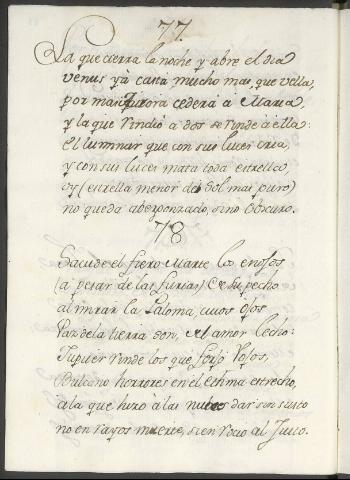 77.
La que cierra la noche y abre el dia
venus yà casta mucho mas, que vella,
por mas Aurora cederà a Maria,
y la que rindiò à dos se rinde à ella:
el luminar que con sus luces cria,
y con sus luces mata toda estrella,
oy (estrella menor del Sol mas puro)
no queda abergonzado, sino obscuro.
78
Sacude el fiero Marte los enojos
(a pesar de las furias) de su pecho
al mirar la Paloma, cuios ojos
Paz de la tierra son, del amor lecho:
Jupiter rinde los que
Bulcano horrores en el Ethna estrecho,
a la que hizo à las nubes dar sin susto
no en rayos muerte, si en rocio al Justo.